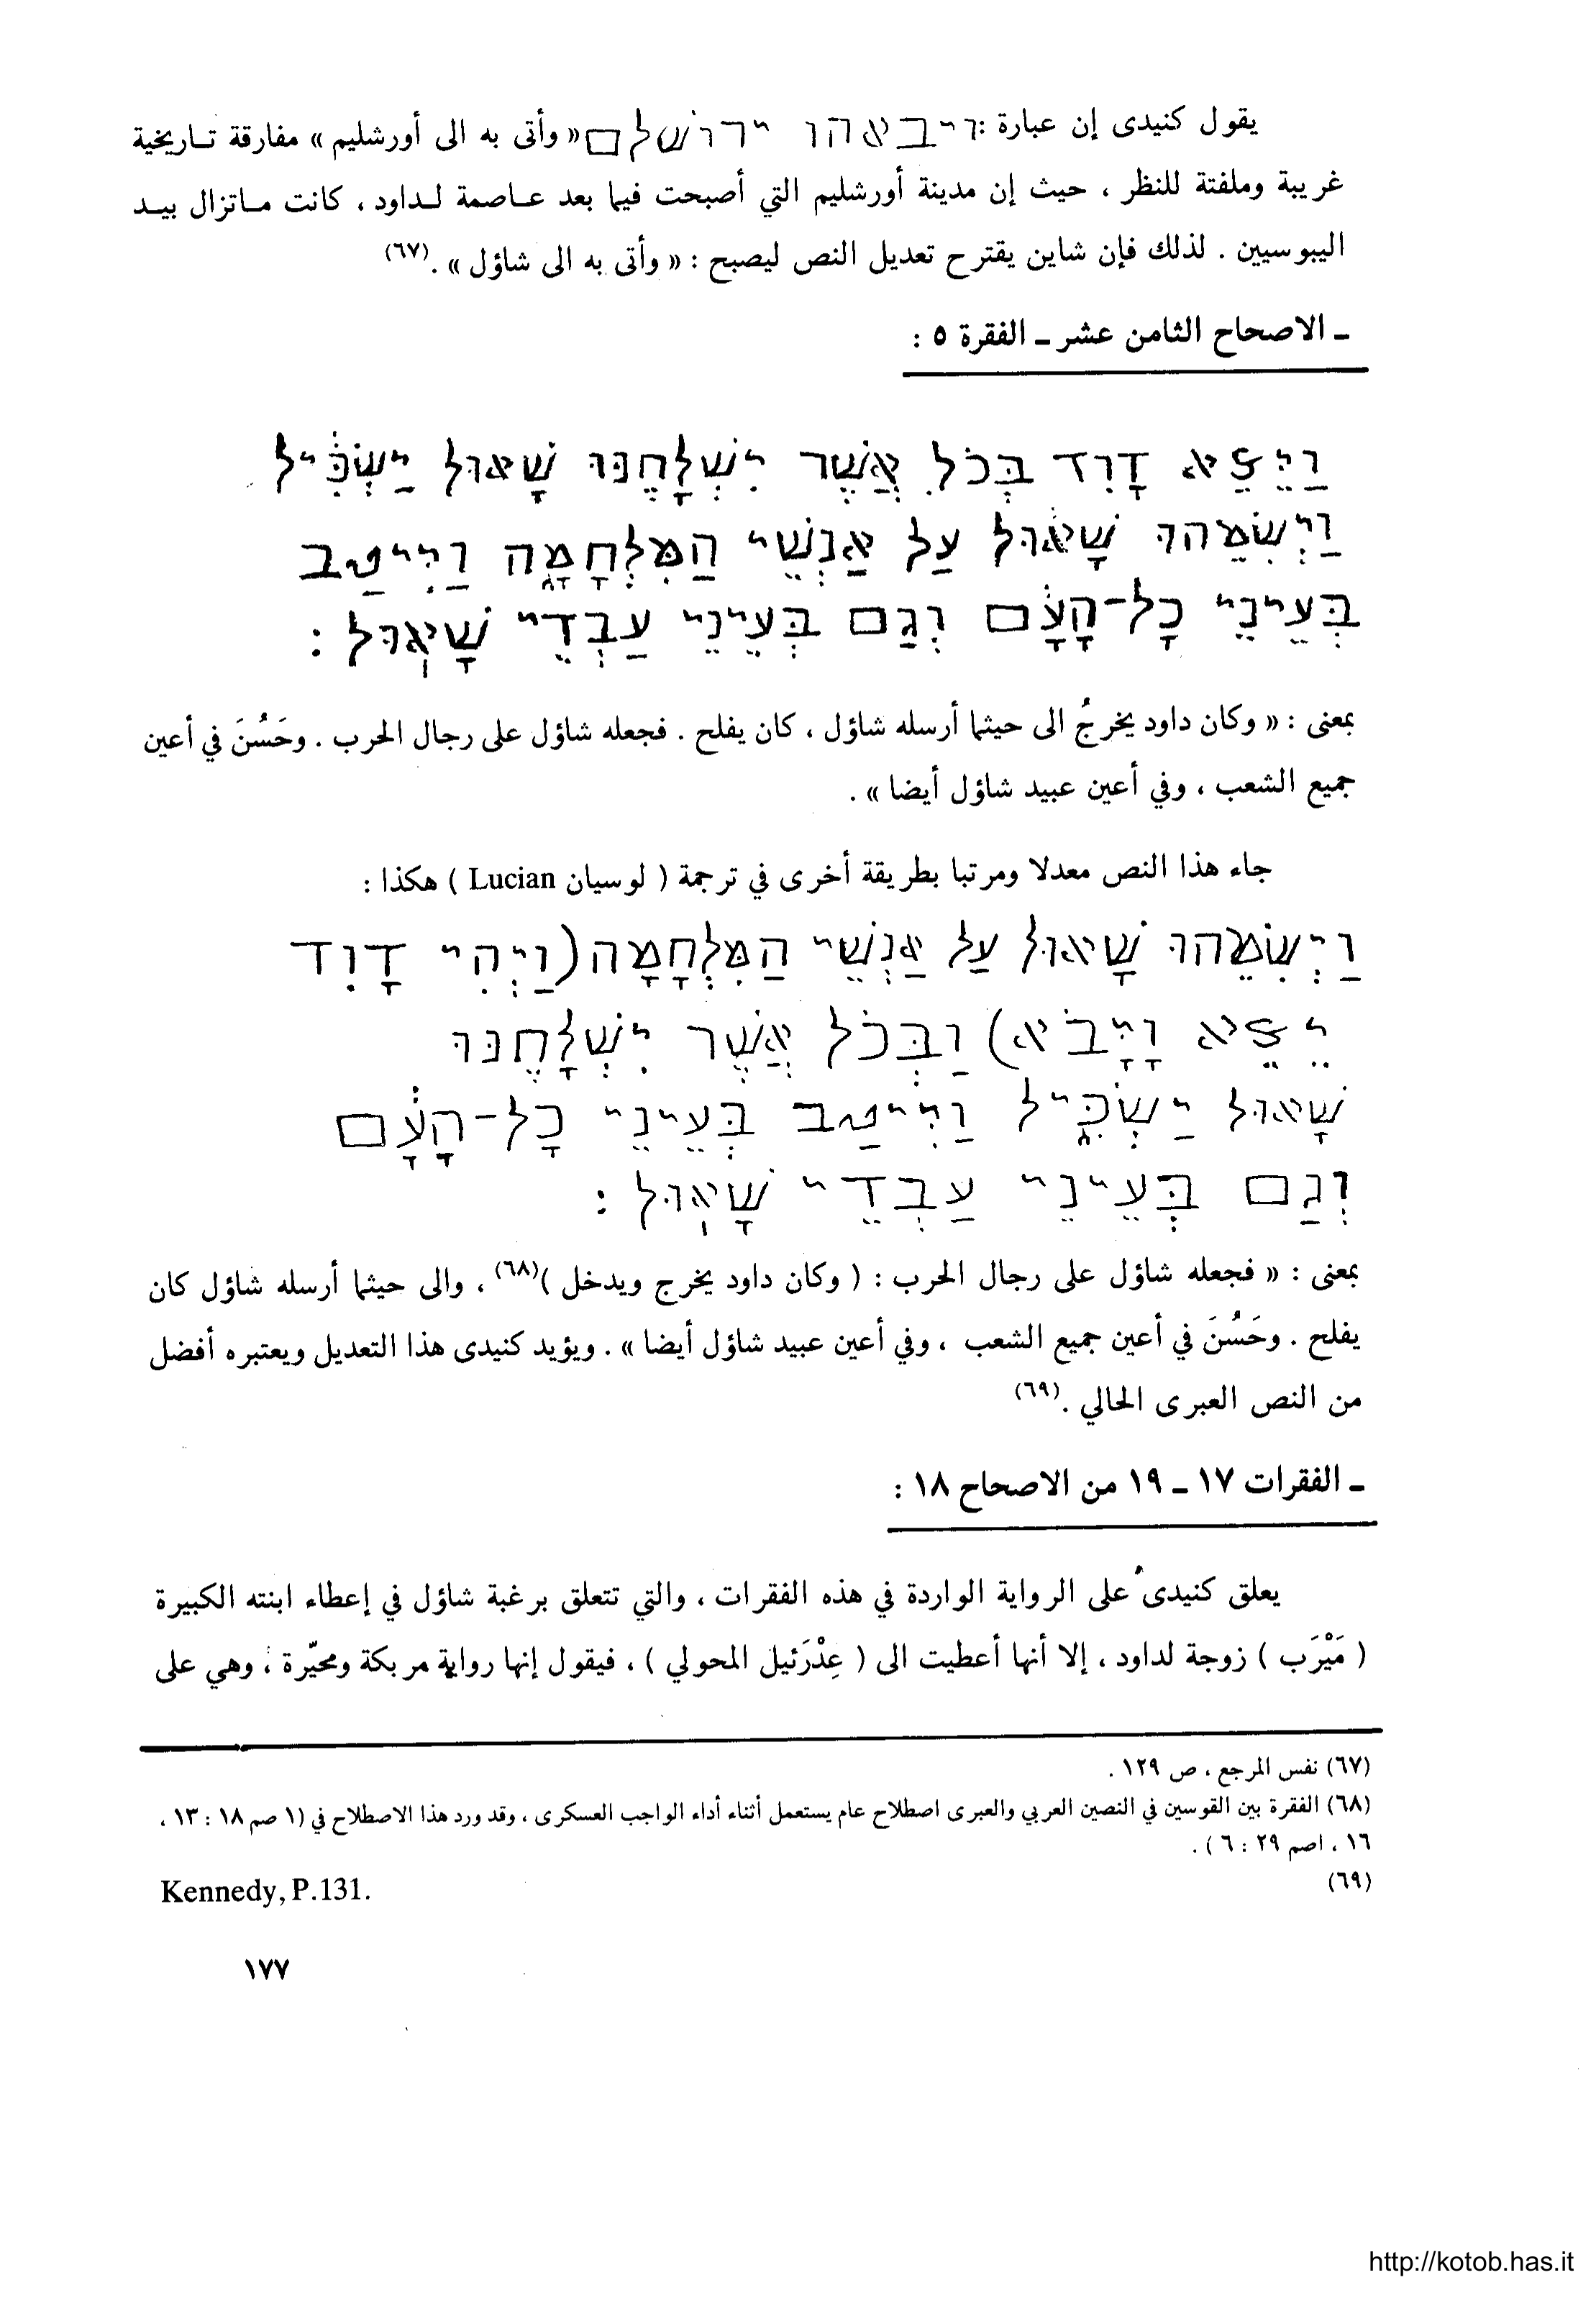 يقول كنيدى إن عبارة : ויבאהו ירושלם « وأتى به الى أورشليم » مفارقة تـاريخية
غريبة وملفتة للنظر ، حيث إن مدينة أورشليم التي أصبحت فيما بعد عـاصمة لـداود ، كانت مـاتزال بيـد
اليبوسيين . لذلك فإن شاين يقترح تعديل النص ليصبح : « وأتى به الى شاؤل » .(٦٧)
ـ الاصحاح الثامن عشر ـ الفقرة ٥ :
וַיֵּצֵא דָוִד בְּכֹל אֲשֶׁר יִשְׁלָחֶנּוּ שָׁאוּל יַשְׂכִּיל
וַיְשִׂמֵהוּ שָׁאוּל עַל אַנְשֵׁי הַמִּלְחָמָה וַיִּיטַב
בְּעֵינֵי כָל־הָעָם וְגַם בְּעֵינֵי עַבְדֵי שָׁאֽוּל :
بمعنى : « وكان داود يخرجُ الى حيثما أرسله شاؤل ، كان يفلح . فجعله شاؤل على رجال الحرب . وحَسُنَ في أعين
جميع الشعب ، وفي أعين عبيد شاؤل أيضا » .
جاء هذا النص معدلا ومرتبا بطريقة أخرى في ترجمة ( لوسيان Lucian ) هكذا :
וַיְשִׂמֵהוּ שָׁאוּל עַל אַנְשֵׁי הַמִּלְחָמָה (וַיְהִי דָוִד
יֵצֵא וָיָּבֹא) וַבְּכֹל אֲשֶׁר יִשְׁלָחֶנּוּ
שָׁאוּל יַשְׂכִּיל וַיִּיטַב בְּעֵינֵי כָל־הָעָם
וְגַם בְּעֵינֵי עַבְדֵי שָׁאֽוּל :
بمعنى : « فجعله شاؤل على رجال الحرب : ( وكان داود يخرج ويدخل )(٦٨) ، والى حيثما أرسله شاؤل كان
يفلح . وحَسُنَ في أعين جميع الشعب ، وفي أعين عبيد شاؤل أيضا » . ويؤيد كنيدى هذا التعديل ويعتبره أفضل
من النص العبرى الحالي .(٦٩)
ـ الفقرات ١٧ ـ ١٩ من الاصحاح ١٨ :
يعلق كنيدى على الرواية الواردة في هذه الفقرات ، والتي تتعلق برغبة شاؤل في إعطاء ابنته الكبيرة
( مَيْرَب ) زوجة لداود ، إلا أنها أعطيت الى ( عِدْرَئيل المحولي ) ، فيقول إنها رواية مربكة ومحيّرة ، وهي على
(٦٧) نفس المرجع ، ص ١٢٩ .
(٦٨) الفقرة بين القوسين في النصين العربي والعبرى اصطلاح عام يستعمل أثناء أداء الواجب العسكرى ، وقد ورد هذا الاصطلاح في (١ صم ١٨ : ١٣ ،
١٦ ، اصم ٢٩ : ٦ ) .
(٦٩) Kennedy, P.131.
١٧٧
http://kotob.has.it